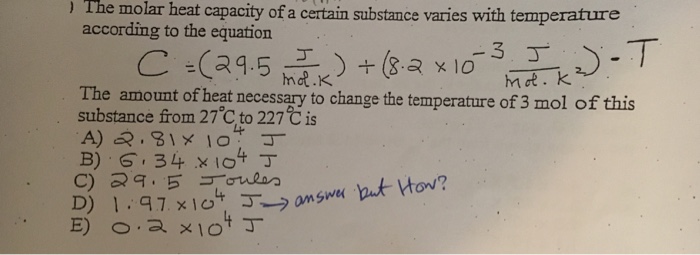 ) The molar heat capacity of a certain substance varies with temperature
according to the equation
C = (29.5 J/mol.K) + (8.2 × 10⁻³ J/mol.K²) - T
The amount of heat necessary to change the temperature of 3 mol of this
substance from 27°C to 227°C is
A) 2.81 × 10⁴ J
B) 6.34 × 10⁴ J
C) 29.5 Joules
D) 1.97 × 10⁴ J → answer but How?
E) 0.2 × 10⁴ J